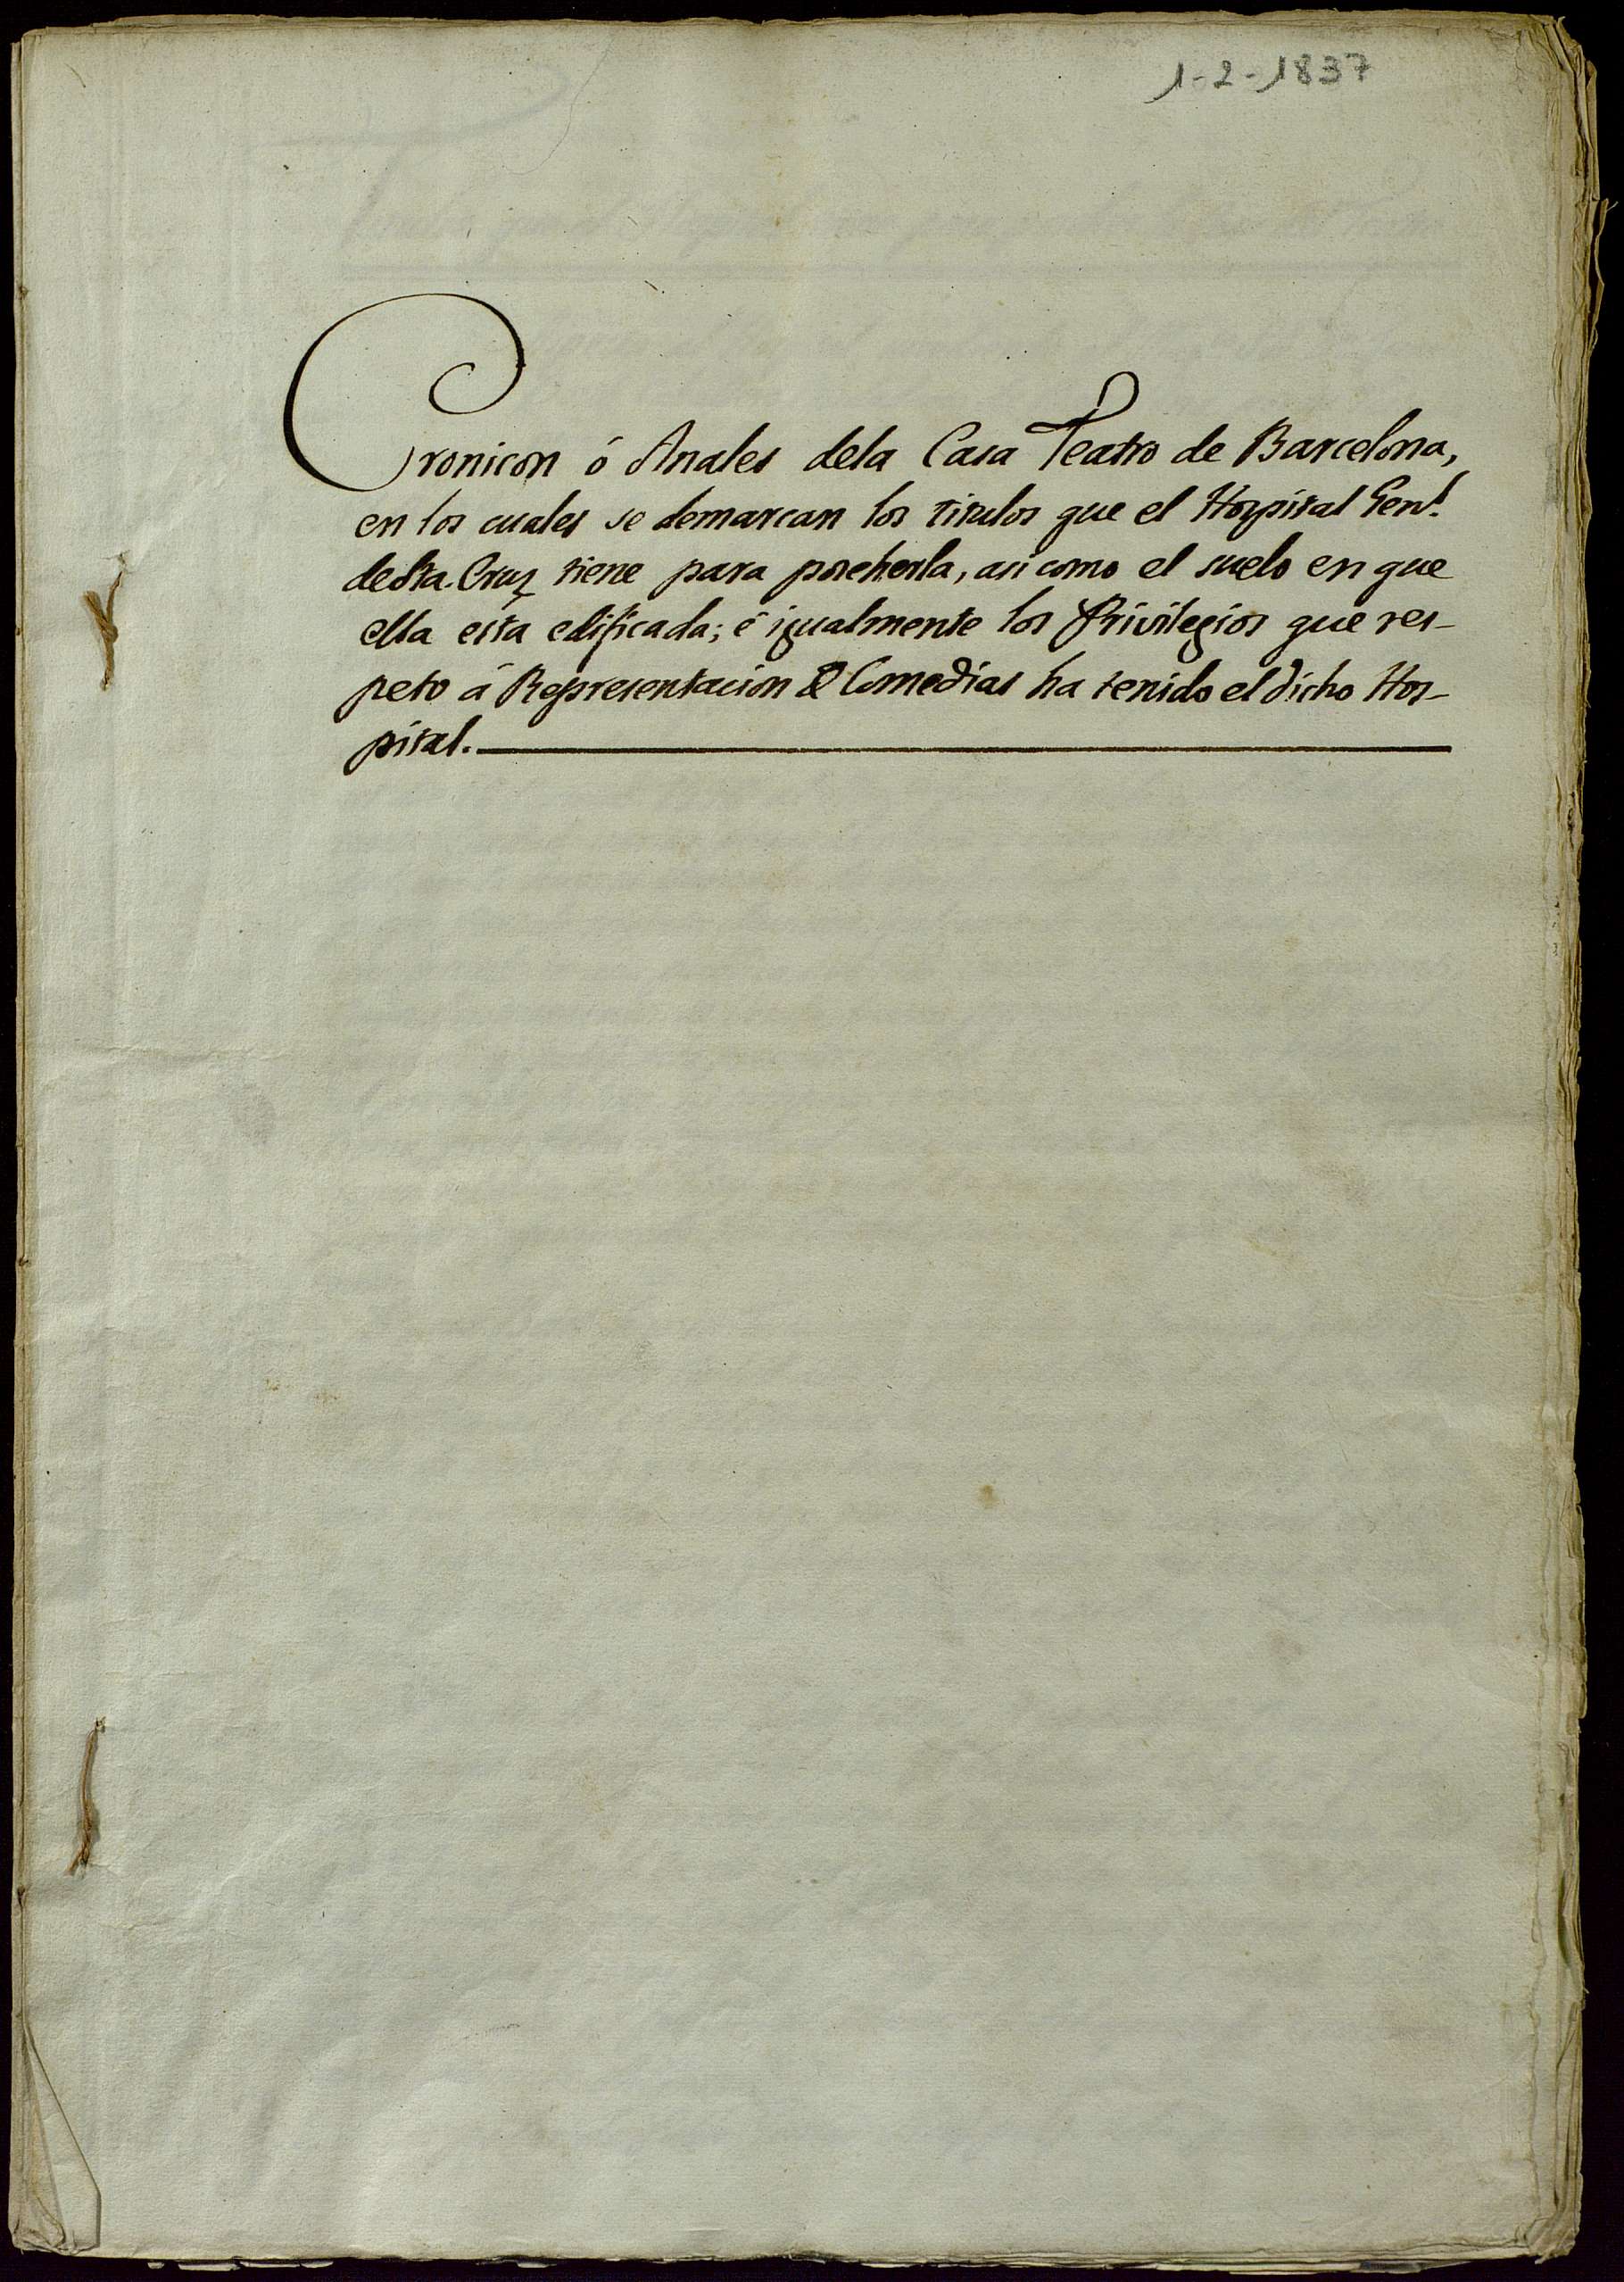 1-2-1837
Cronicon ó Anales dela Casa Teatro de Barcelona,
en los cuales se demarcan los titulos que el Hospital Gen.l
de Sta. Cruz tiene para poseherla, asi como el suelo en que
ella esta edificada; é igualmente los Privilegios que res-
peto á Representacion de Comedias ha tenido el dicho Hos-
pital.